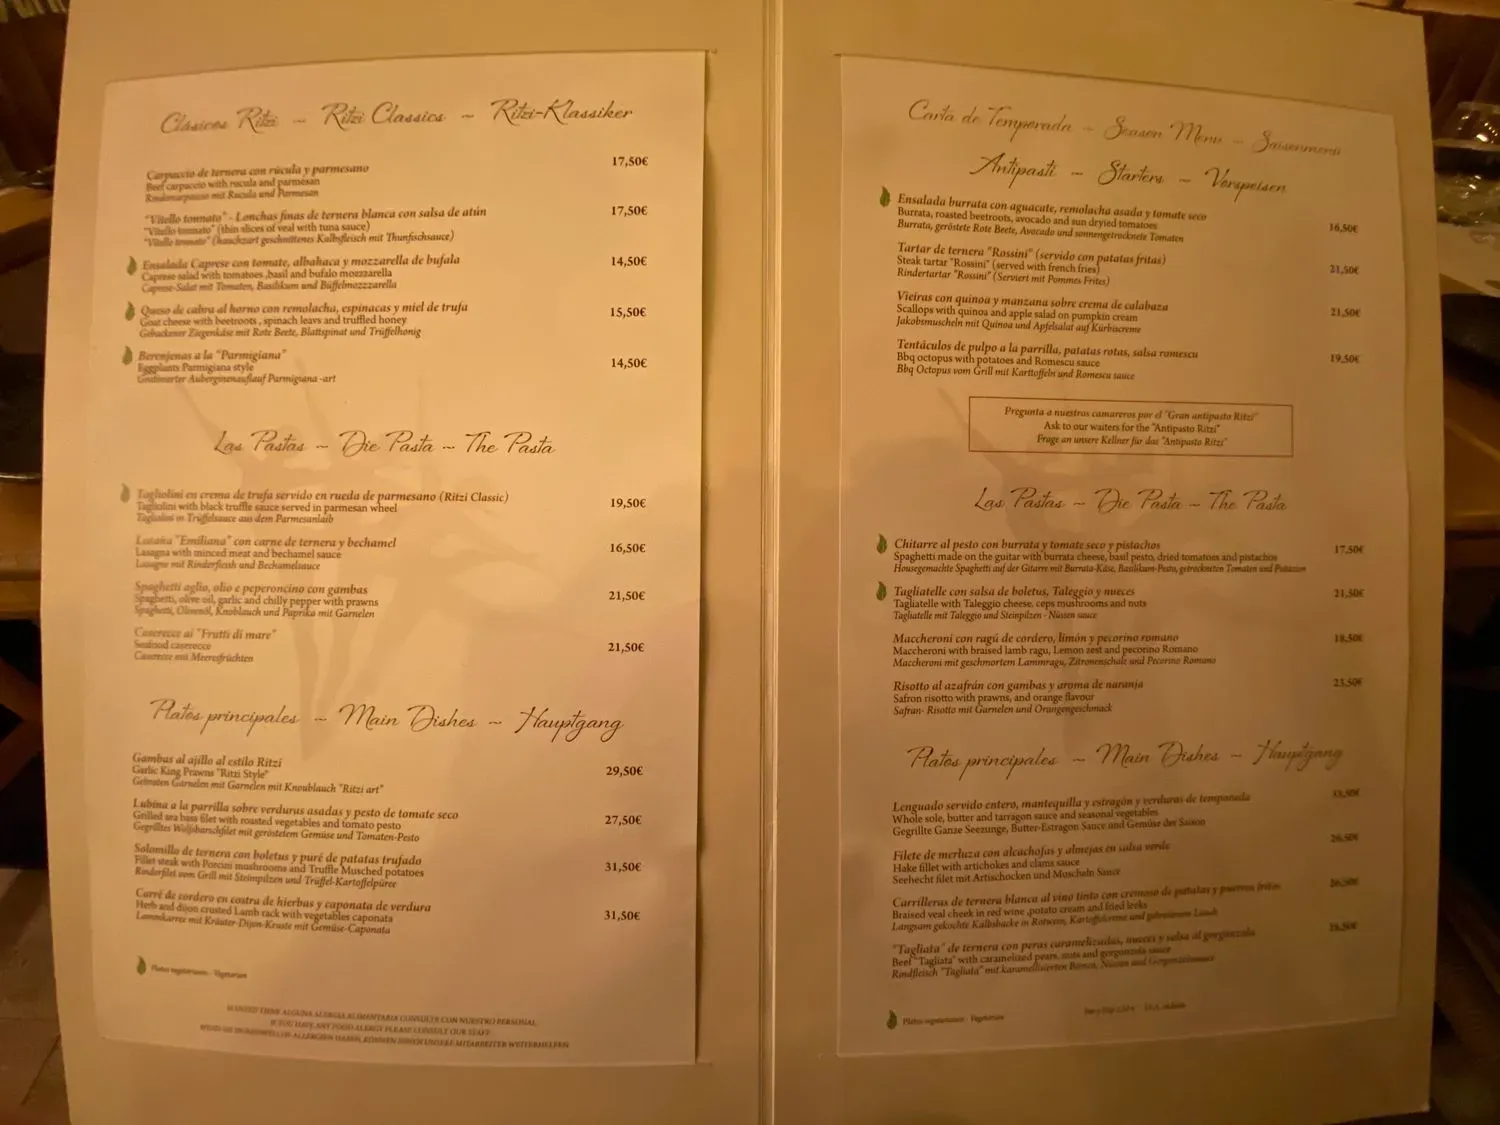 Clásicos Ritzi ~ Ritzi Classics ~ Ritzi-Klassiker
Carpaccio de ternera con rúcula y parmesano 17,50€
Beef carpaccio with rucula and parmesan
Rindercarpaccio mit Rucula und Parmesan
"Vitello tonnato" - Lonchas finas de ternera blanca con salsa de atún 17,50€
"Vitello tonnato" (thin slices of veal with tuna sauce)
"Vitello tonnato" (hauchzart geschnittenes Kalbsfleisch mit Thunfischsauce)
Ensalada Caprese con tomate, albahaca y mozzarella de bufala 14,50€
Caprese salad with tomatoes ,basil and bufalo mozzarella
Caprese-Salat mit Tomaten, Basilikum und Büffelmozzzarella
Queso de cabra al horno con remolacha, espinacas y miel de trufa 15,50€
Goat cheese with beetroots , spinach leavs and truffled honey
Gebackener Ziegenkäse mit Rote Beete, Blattspinat und Trüffelhonig
Berenjenas a la "Parmigiana" 14,50€
Eggplants Parmigiana style
Gratinierter Auberginenauflauf Parmigiana -art
Las Pastas ~ Die Pasta ~ The Pasta
Tagliolini en crema de trufa servido en rueda de parmesano (Ritzi Classic) 19,50€
Tagliolini with black truffle sauce served in parmesan wheel
Tagliolini in Trüffelsauce aus dem Parmesanlaib
Lasaña "Emiliana" con carne de ternera y bechamel 16,50€
Lasagna with minced meat and bechamel sauce
Lasagne mit Rinderfleish und Bechamelsauce
Spaghetti aglio, olio e peperoncino con gambas 21,50€
Spaghetti, olive oil, garlic and chilly pepper with prawns
Spaghetti, Olivenöl, Knoblauch und Paprika mit Garnelen
Caserecce ai "Frutti di mare" 21,50€
Seafood caserecce
Caserecce mit Meeresfrüchten
Platos principales ~ Main Dishes ~ Hauptgang
Gambas al ajillo al estilo Ritzi 29,50€
Garlic King Prawns "Ritzi Style"
Gebraten Garnelen mit Garnelen mit Knoublauch "Ritzi art"
Lubina a la parrilla sobre verduras asadas y pesto de tomate seco 27,50€
Grilled sea bass filet with roasted vegetables and tomato pesto
Gegrilltes Wolfsbarschfilet mit geröstetem Gemüse und Tomaten-Pesto
Solomillo de ternera con boletus y puré de patatas trufado 31,50€
Fillet steak with Porcini mushrooms and Truffle Musched potatoes
Rinderfilet vom Grill mit Steinpilzen und Trüffel-Kartoffelpüree
Carré de cordero en costra de hierbas y caponata de verdura 31,50€
Herb and dijon crusted Lamb rack with vegetables caponata
Lammkarree mit Kräuter-Dijon-Kruste mit Gemüse-Caponata
Platos vegetarianos - Vegetarian
SI USTED TIENE ALGUNA ALERGIA ALIMENTARIA CONSULTE CON NUESTRO PERSONAL
IF YOU HAVE ANY FOOD ALERGY PLEASE CONSULT OUR STAFF
ALLERGIEN HABEN, KÖNNEN IHNEN UNSERE MITARBEITER WEITERHELFEN
Carta de Temporada ~ Season Menu ~ Saisonmenü
Antipasti ~ Starters ~ Vorspeisen
Ensalada burrata con aguacate, remolacha asada y tomate seco 16,50€
Burrata, roasted beetroots, avocado and sun dryied tomatoes
Burrata, geröstete Rote Beete, Avocado und sonnengetrocknete Tomaten
Tartar de ternera "Rossini" (servido con patatas fritas) 21,50€
Steak tartar "Rossini" (served with french fries)
Rindertartar "Rossini" (Serviert mit Pommes Frites)
Vieiras con quinoa y manzana sobre crema de calabaza 21,50€
Scallops with quinoa and apple salad on pumpkin cream
Jakobsmuscheln mit Quinoa und Apfelsalat auf Kürbiscreme
Tentáculos de pulpo a la parrilla, patatas rotas, salsa romescu 19,50€
Bbq octopus with potatoes and Romescu sauce
Bbq Octopus vom Grill mit Karttoffeln und Romescu sauce
Pregunta a nuestros camareros por el "Gran antipasto Ritzi"
Ask to our waiters for the "Antipasto Ritzi"
Frage an unsere Kellner für das "Antipasto Ritzi"
Las Pastas ~ Die Pasta ~ The Pasta
Chitarre al pesto con burrata y tomate seco y pistachos 17,50€
Spaghetti made on the guitar with burrata cheese, basil pesto, dried tomatoes and pistachios
Housegemachte Spaghetti auf der Gitarre mit Burrata-Käse, Basilikum-Pesto, getrockneten Tomaten und Pistazien
Tagliatelle con salsa de boletus, Taleggio y nueces 21,50€
Tagliatelle with Taleggio cheese, ceps mushrooms and nuts
Tagliatelle mit Taleggio und Steinpilzen - Nüssen sauce
Maccheroni con ragú de cordero, limón y pecorino romano 18,50€
Maccheroni with braised lamb ragu, Lemon zest and pecorino Romano
Maccheroni mit geschmortem Lammragu, Zitronenschale und Pecorino Romano
Risotto al azafrán con gambas y aroma de naranja 23,50€
Safron risotto with prawns, and orange flavour
Safran- Risotto mit Garnelen und Orangengeschmack
Platos principales ~ Main Dishes ~ Hauptgang
Lenguado servido entero, mantequilla y estragón y verduras de temporada
Whole sole, butter and tarragon sauce and seasonal vegetables
Gegrillte Ganze Seezunge, Butter-Estragon Sauce und Gemüse der Saison
Filete de merluza con alcachofas y almejas en salsa verde
Hake fillet with artichokes and clams sauce
Seehecht filet mit Artischocken und Moscheln Sauce
Carrilleras de ternera blanca al vino tinto con cremoso de patatas y puerros fritos 26,50€
Braised veal cheek in red wine ,potato cream and fried leeks
Langsam gekochte Kalbsbacke in Rotwein, Kartoffelcreme und gebratenem Lauch
"Tagliata" de ternera con peras caramelizadas, nueces y salsa al gorgonzola
Beef "Tagliata" with caramelized pears, nuts and gorgonzola sauce
Rindfleisch "Tagliata" mit karamellisierten Birnen, Nüssen und Gorgonzolasauce
Platos vegetarianos - Vegetarian